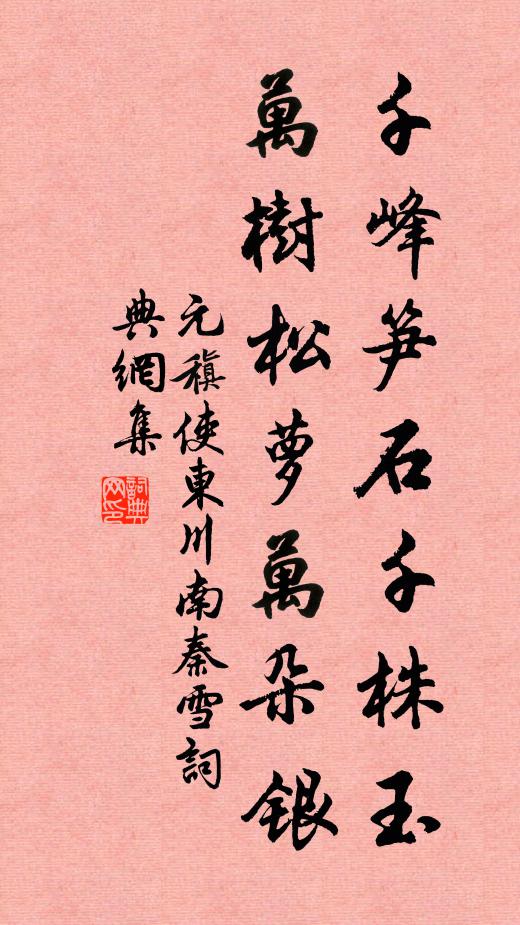 千峰笋石千株玉
萬樹松萝萬朵銀
元稹使東川南秦雪詞
典網集
詞典
网印